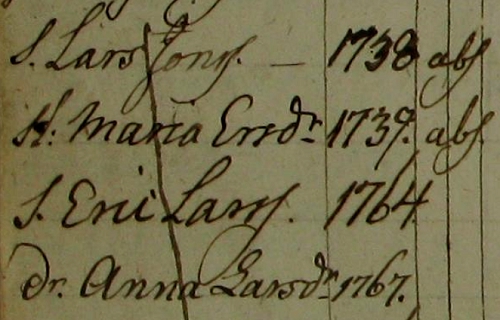 S. Lars Jons. — 1738 abs
H: Maria Ersdr 1737. abs
S. Eric Larss. 1764
Dr. Anna Larsdr 1767.